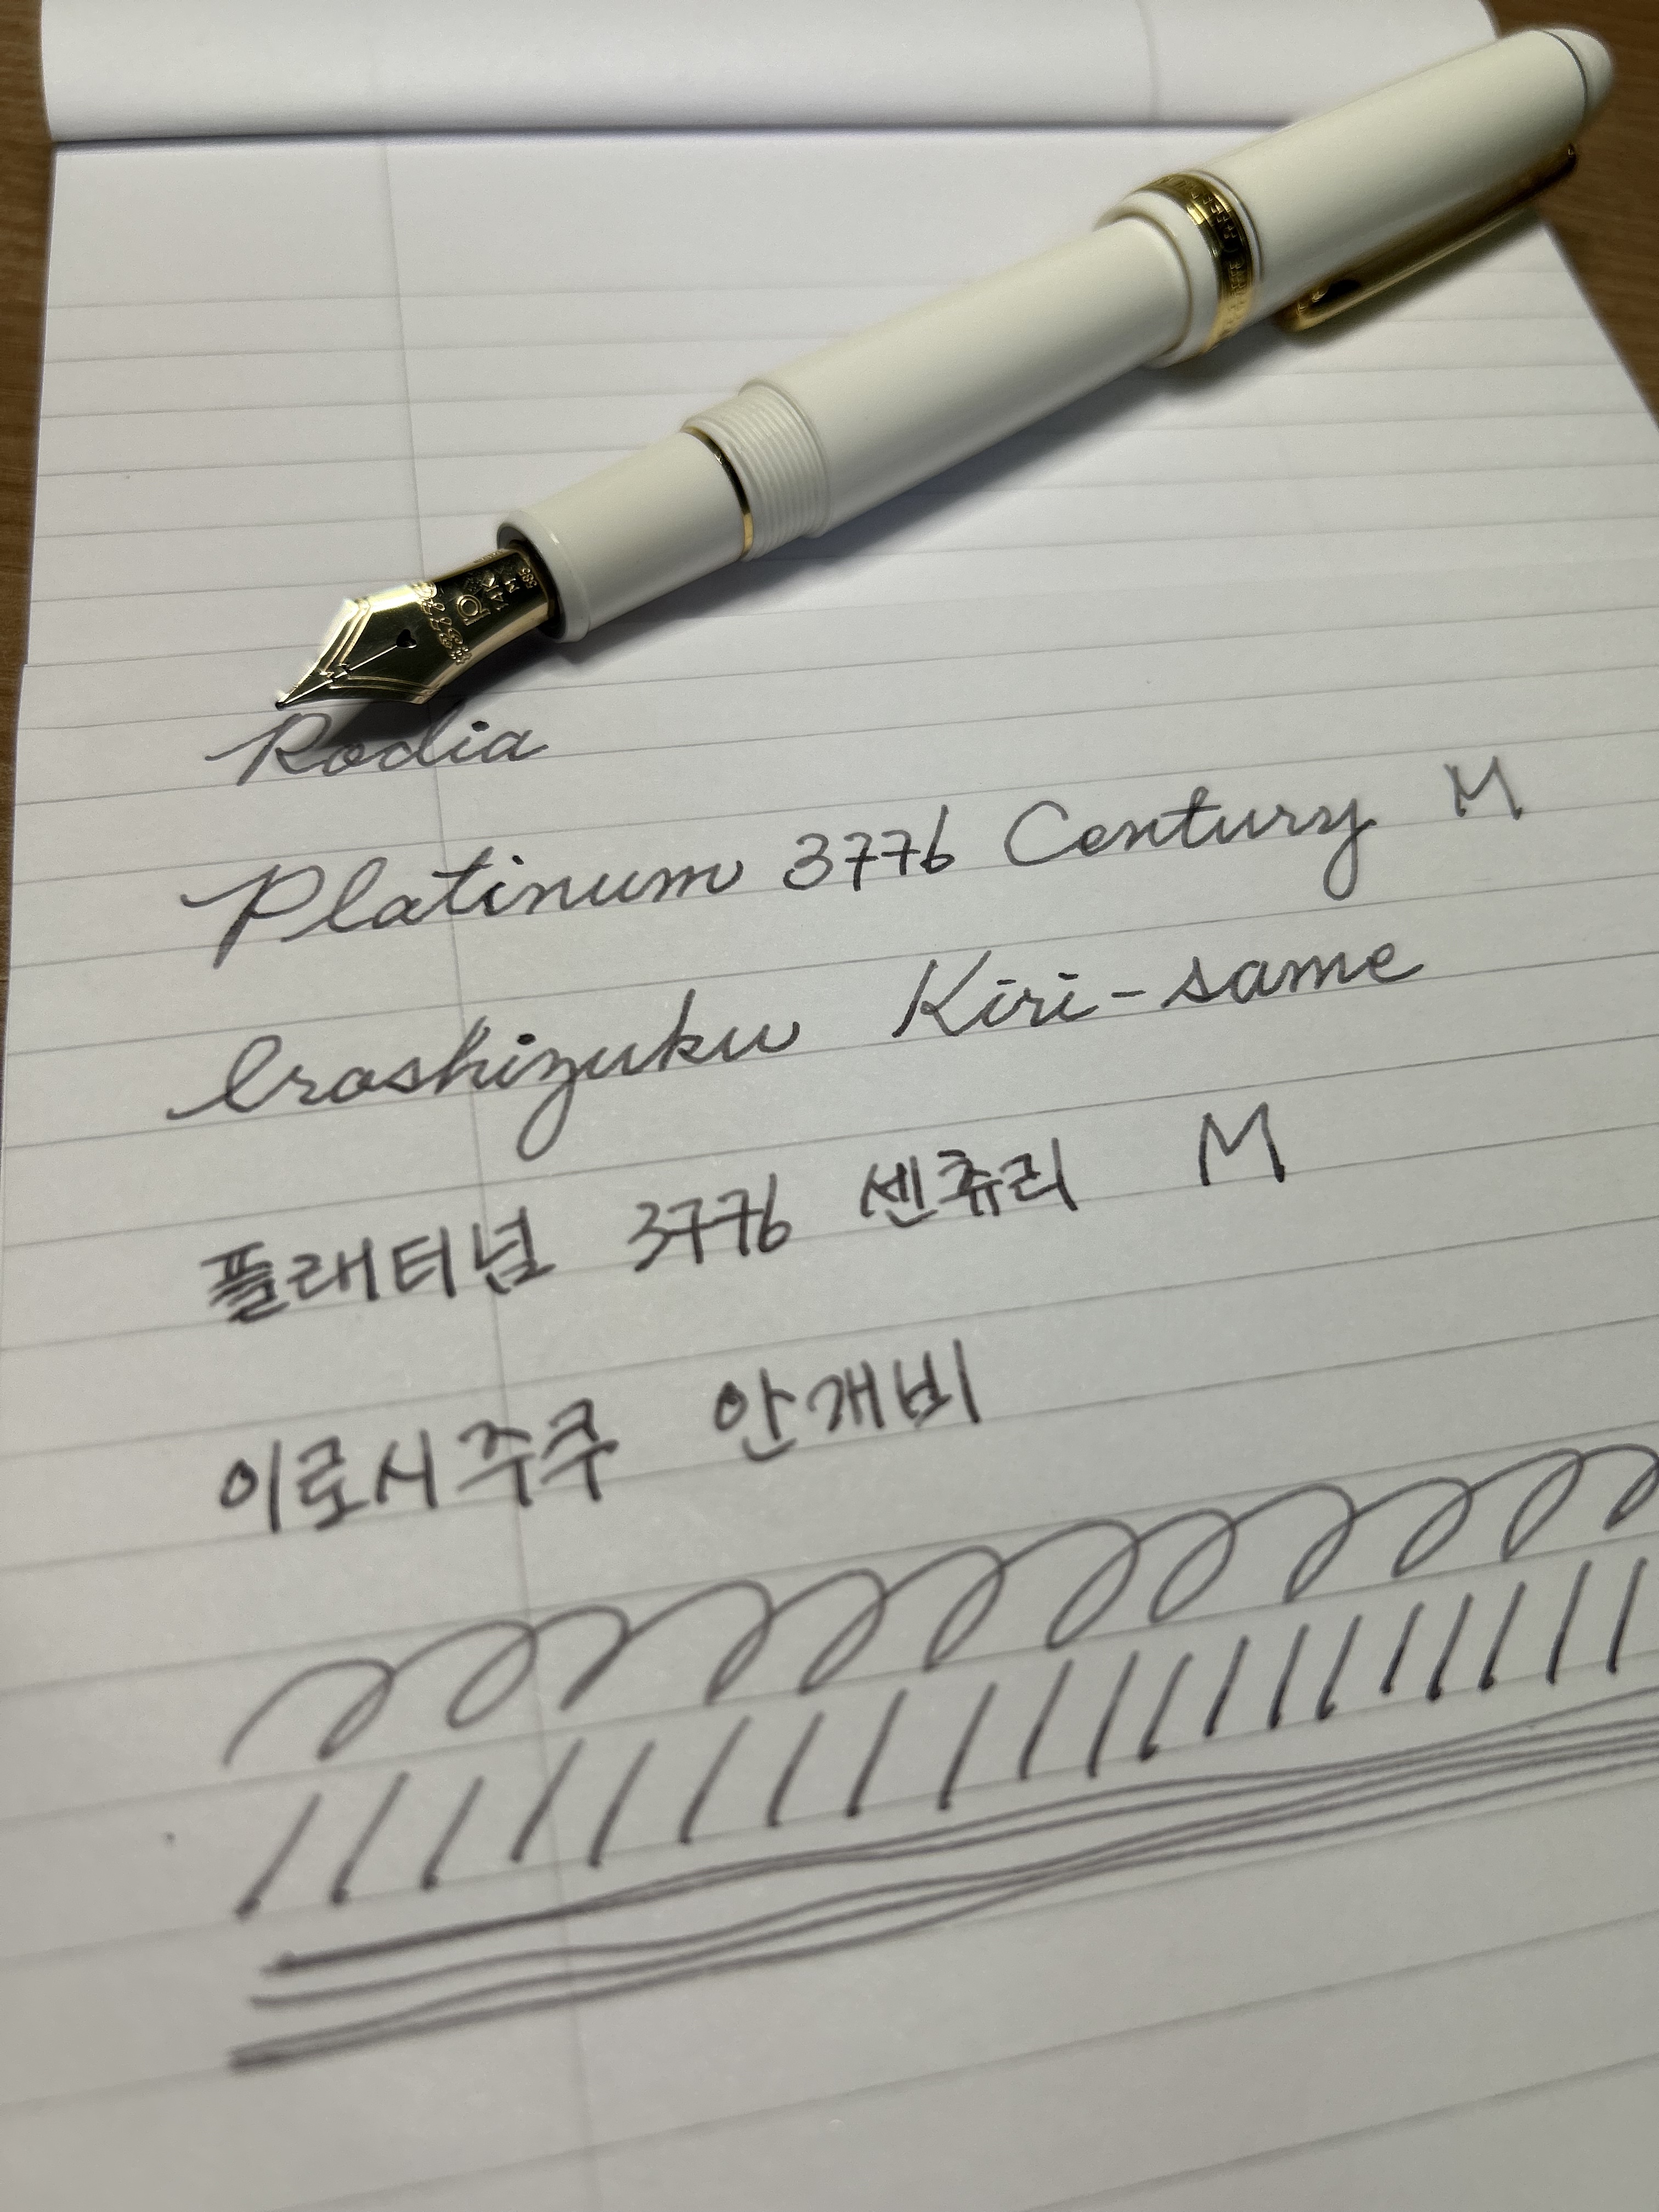 3776
14K
M
585
Rodia
Platinum 3776 Century M
Iroshizuku Kiri-same
플래티넘 3776 센츄리 M
이로시주쿠 안개비